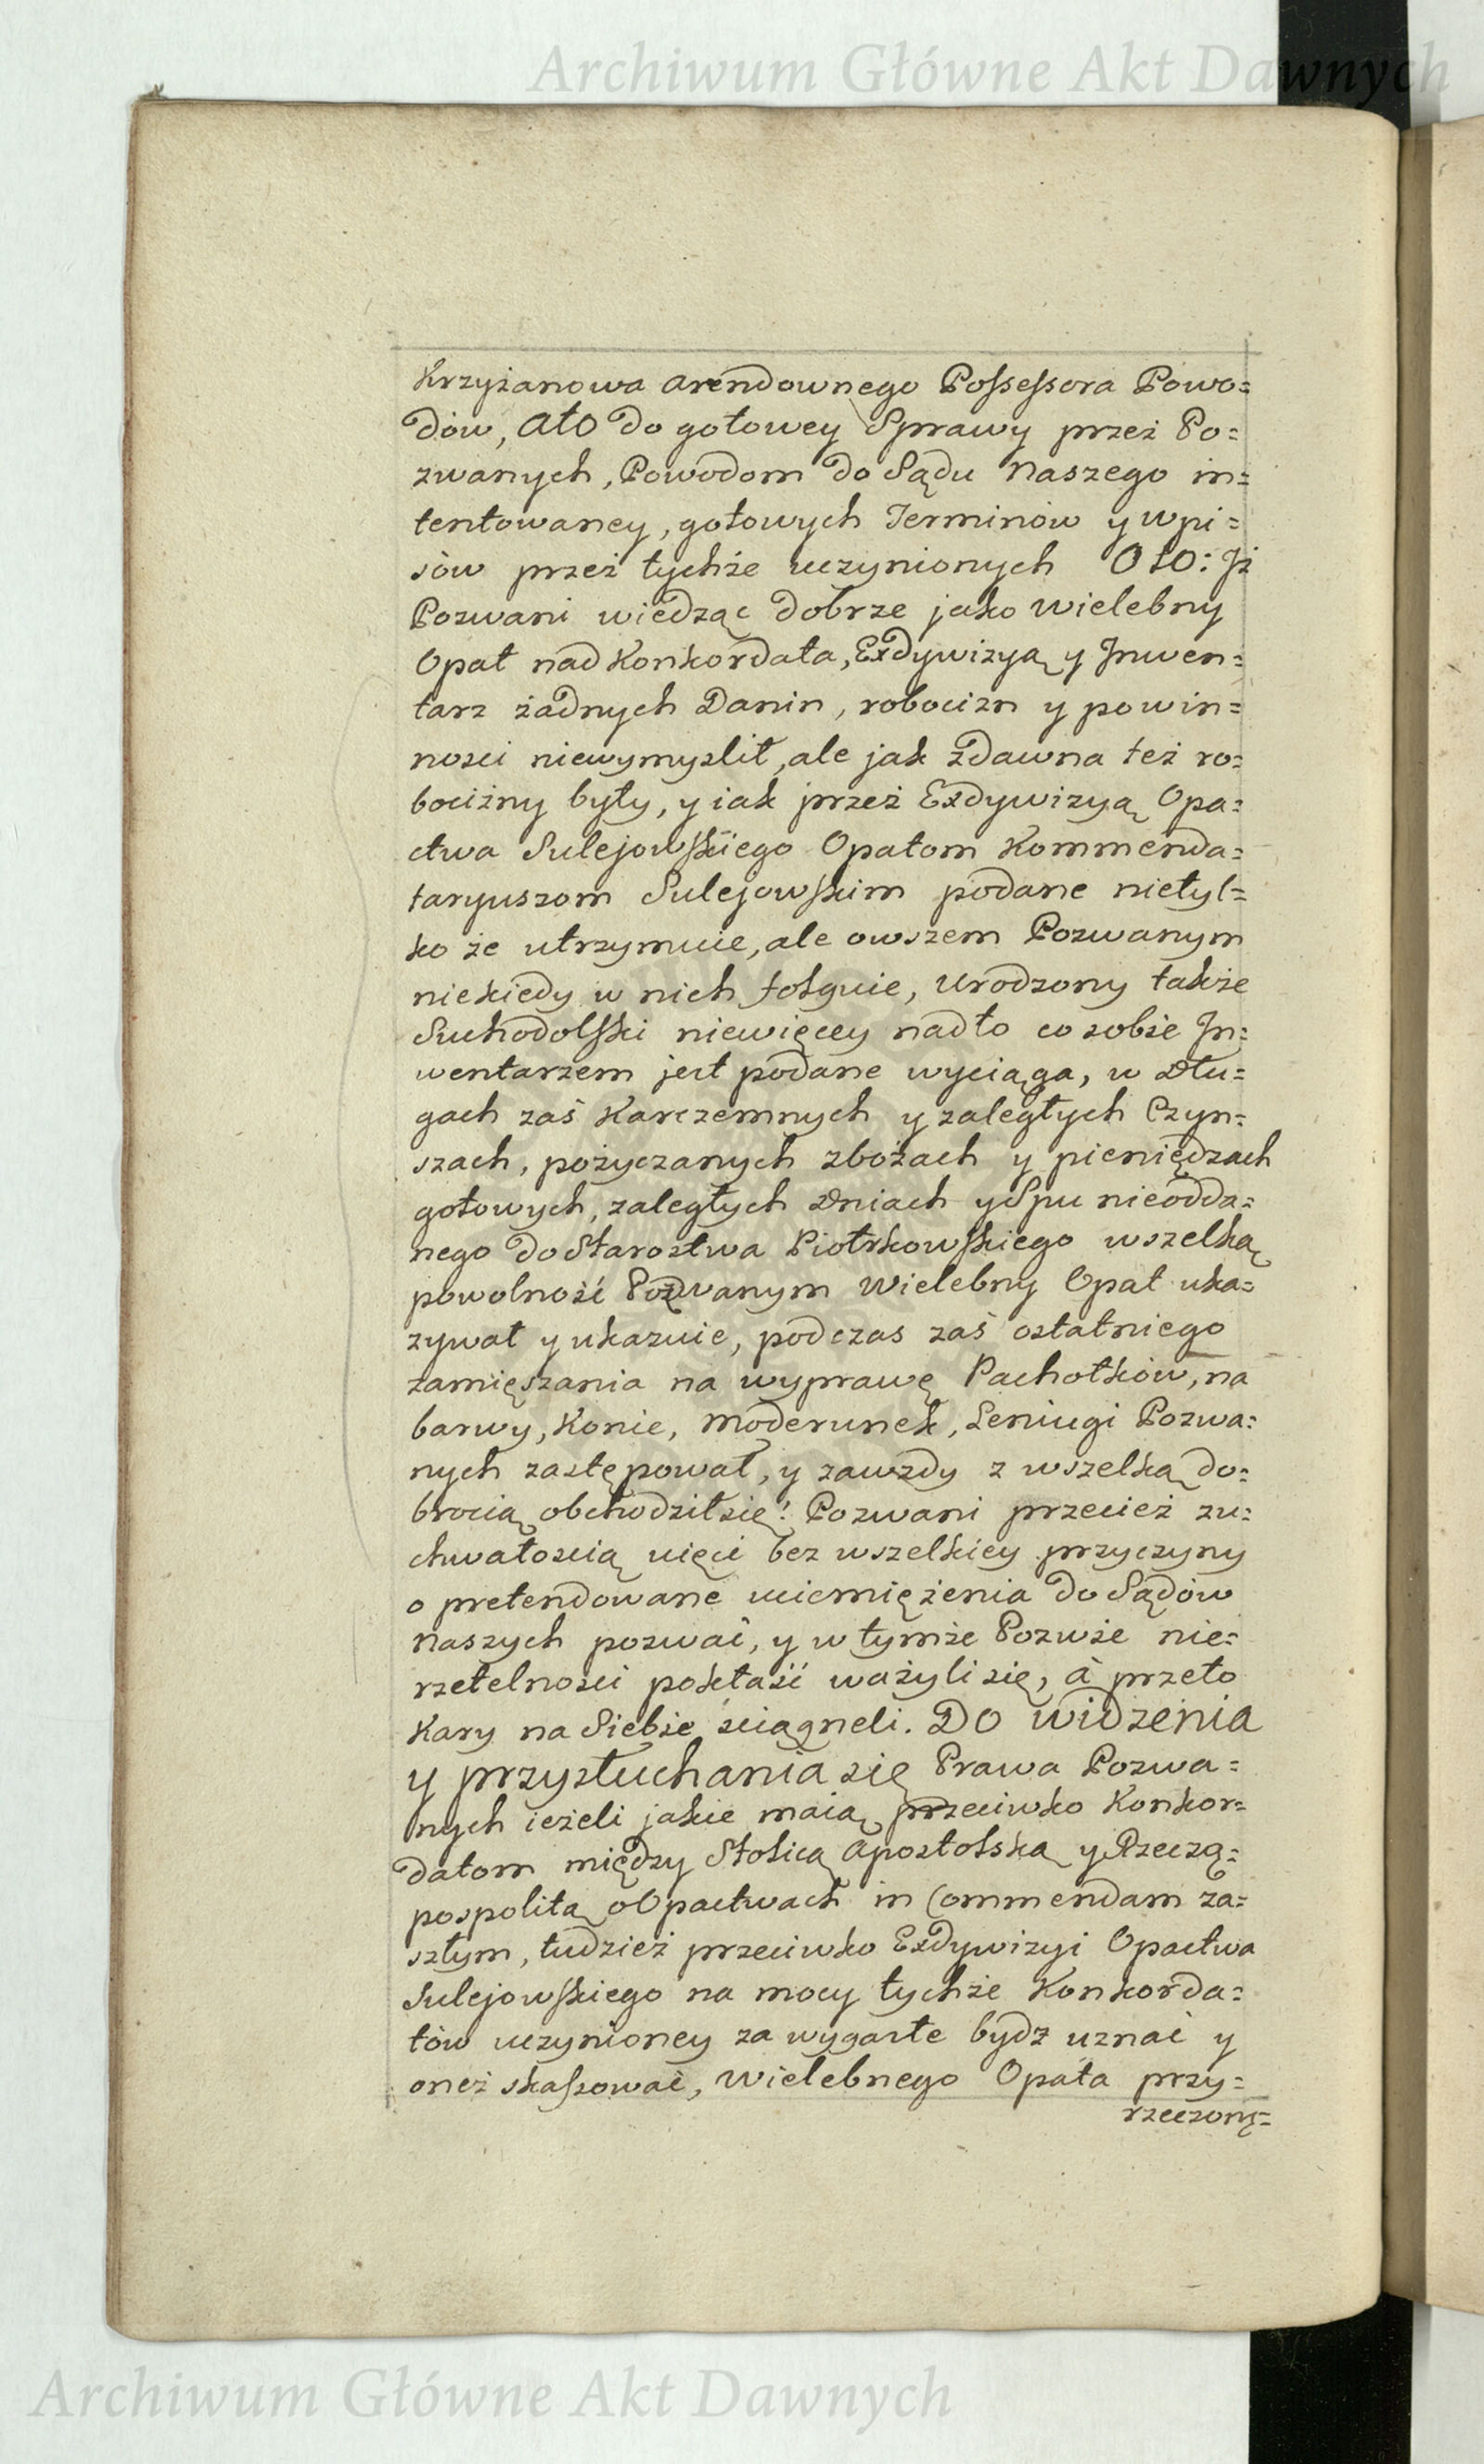 Archiwum Główne Akt Dawnych
Krzyżanowa arendownego Possessora Powo=
dów, Ato do gotowey Sprawy przez Po=
zwanych, Powodom do Sądu Naszego in=
tentowaney, gotowych Terminów y wpi=
sów przez tychże uczynionych Oto: Iż
Pozwani wiedząc dobrze jako Wielebny
Opat nad Konkordata, Exdywizyą y Inwen=
tarz żadnych Danin, robocizn y powin=
nosci niewymyslił, ale jak zdawna też ro=
bocizny były, y iak przez Exdywizyą Opa=
ctwa Sulejowskiego Opatom Kommenda=
taryuszom Sulejowskim podane nietyl=
ko że utrzymuie, ale owszem Pozwanym
niekiedy w nich folguie, Urodzony także
Suchodolski niewięcey nadto co sobie In=
wentarzem jest podane wyciąga, w Dłu=
gach zaś Karczemnych y zaległych Czyn=
szach, pożyczanych zbożach y pieniędzach
gotowych, zaległych Dniach y Spu nieodda=
nego do Starostwa Piotrkowskiego wszelką
powolność Pozwanym Wielebny Opat uka=
zywał y ukazuie, podczas zaś ostatniego
zamięszania na wyprawę Pachołków, na
barwy, Konie, Moderunek, Leniugi Pozwa=
nych zastępował, y zawzdy z wszelką do=
brocią obchodził się! Pozwani przecież zu=
chwałoscią uięci bez wszelkiey przyczyny
o pretendowane uciemiężenia do Sądów
Naszych pozwać, y w tymże Pozwie nie=
rzetelnosci pokłaść ważyli się, à przeto
Kary na Siebie ściągneli. Do widzenia
y przysłuchania się Prawa Pozwa=
nych ieżeli jakie maią przeciwko Konkor=
datom między Stolicą Apostolską y Rzeczą=
pospolitą o Opactwach in Commendam za=
szłym, tudzież przeciwko Exdywizyi Opactwa
Sulejowskiego na mocy tychże Konkorda=
tów uczynioney za wygasłe bydz uznać y
oneż skassować, Wielebnego Opata przy=
rzeczoną=
Archiwum Główne Akt Dawnych